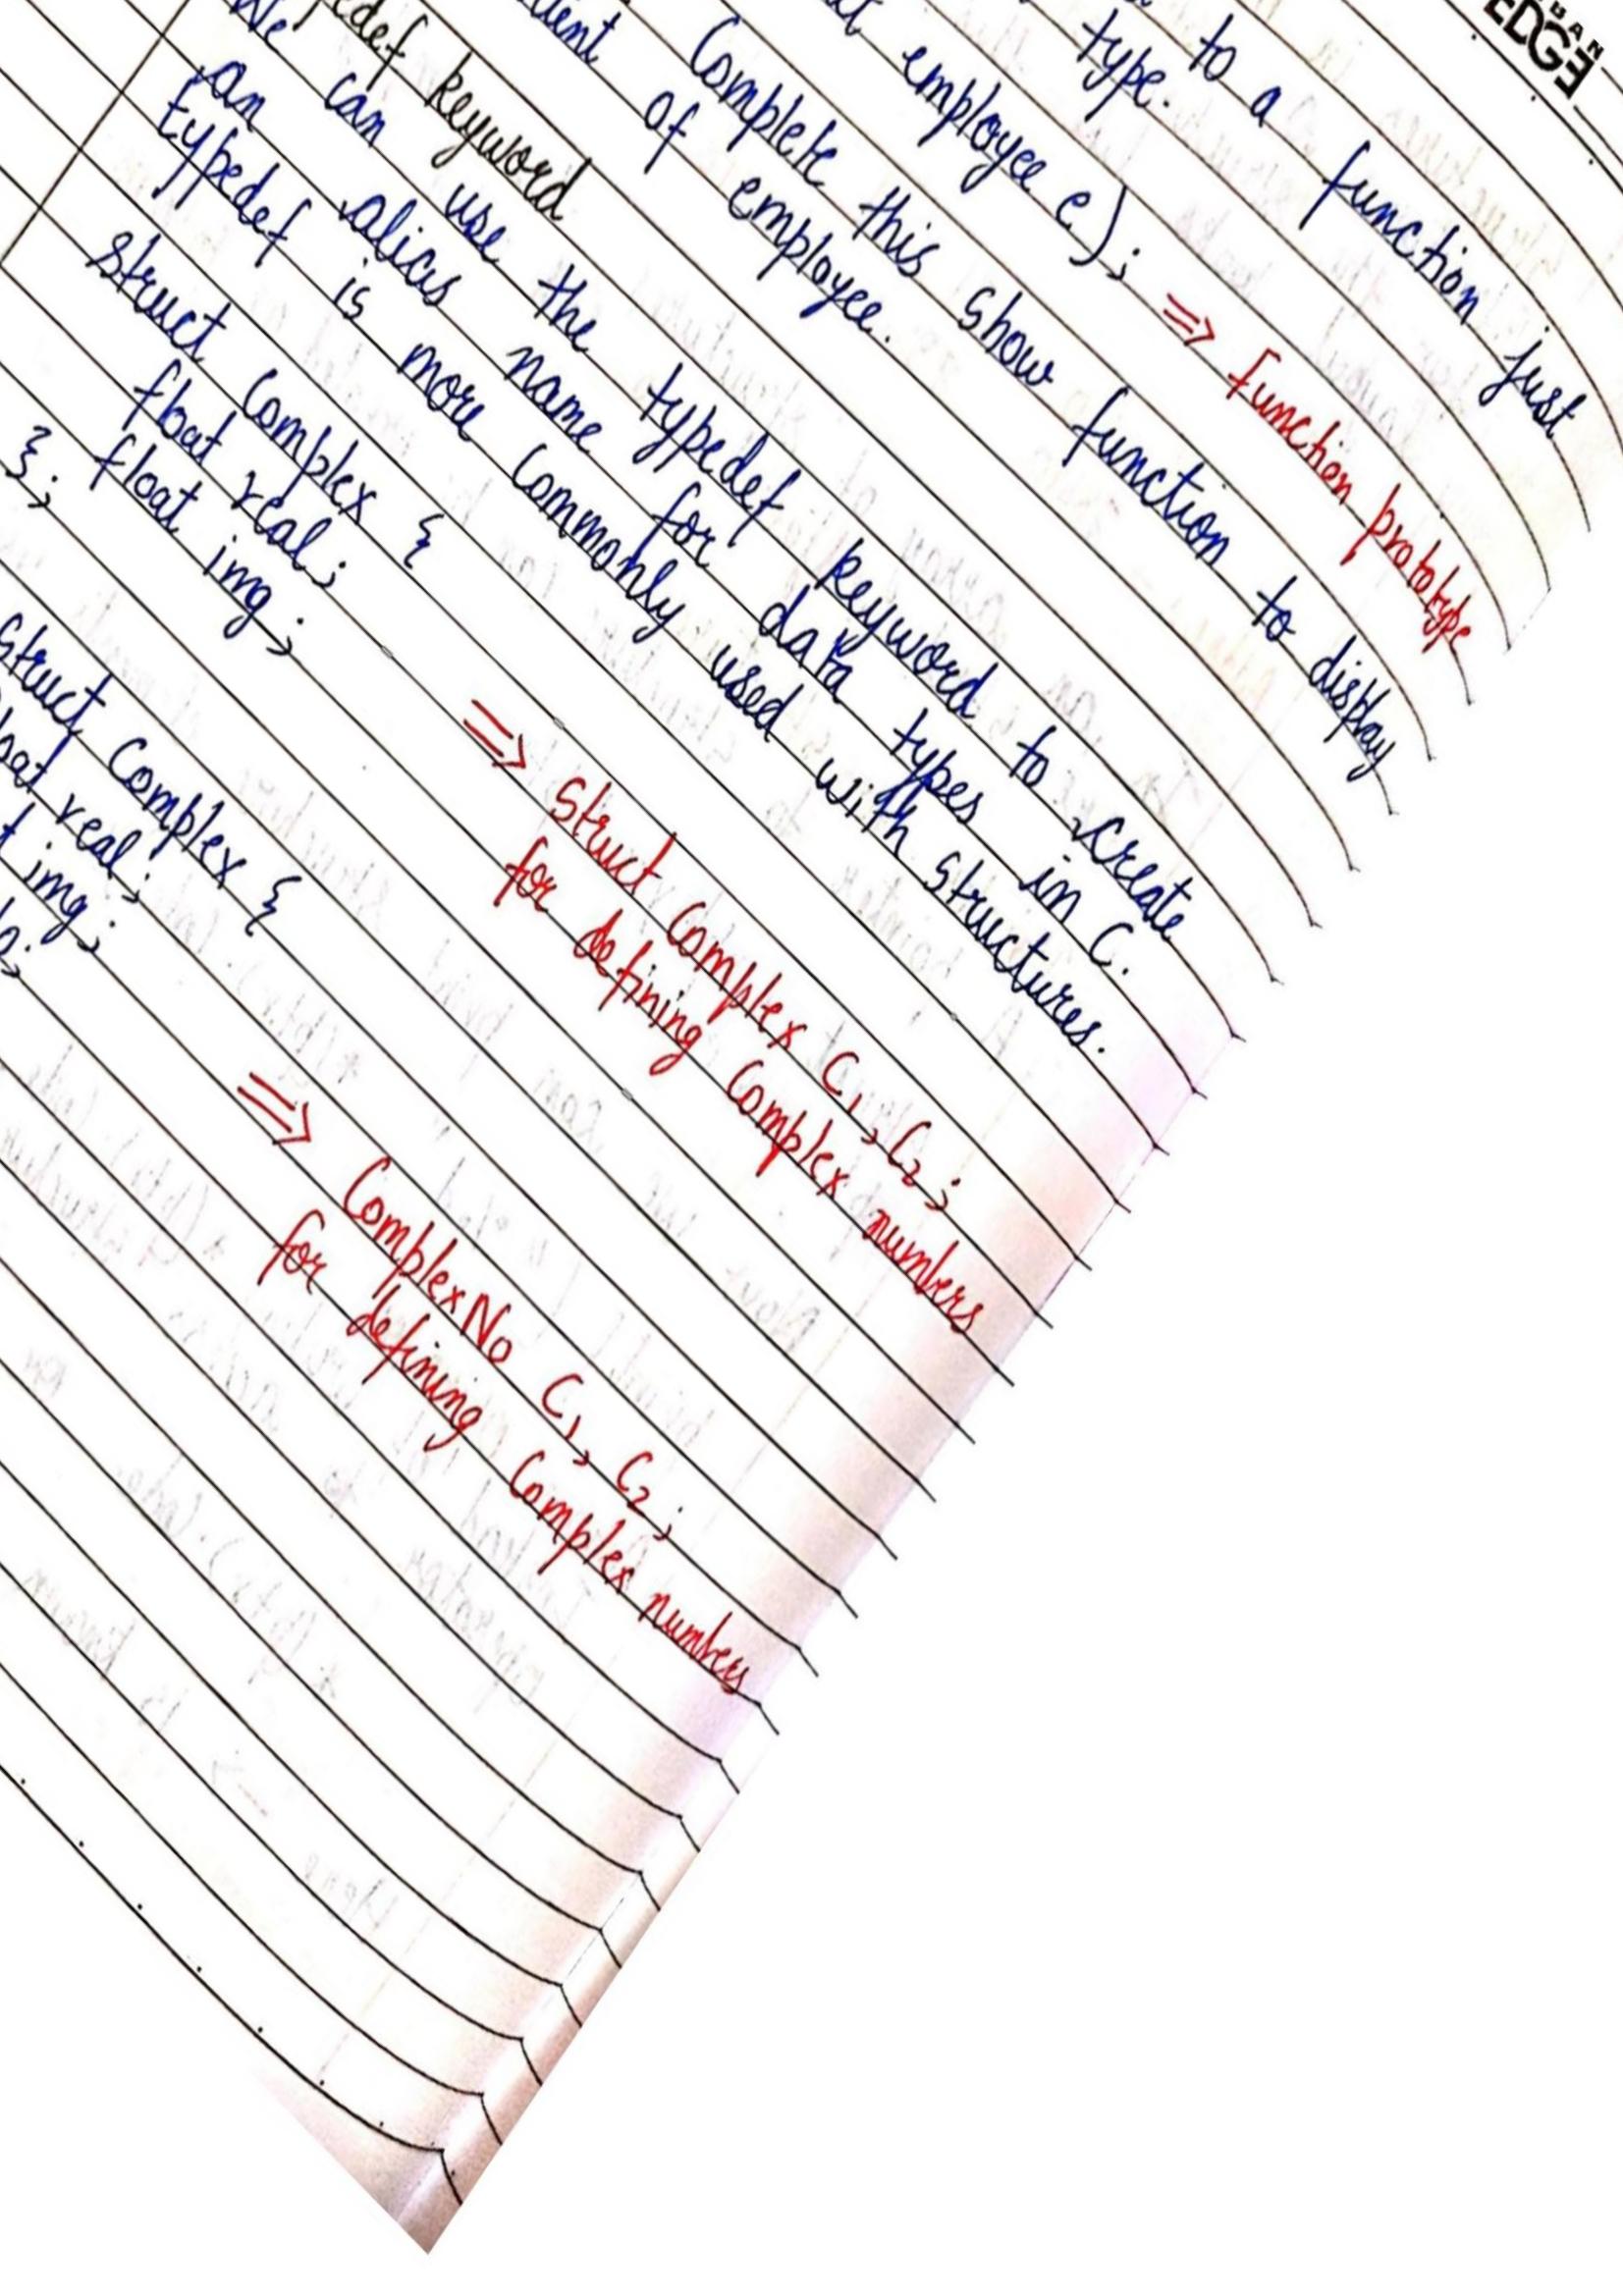 URBAN
EDGE
to a function just
type.
employee e); ⇒ function prototype
Complete this show function to display
of employee.
keyword
We can use the typedef keyword to create
an alias name for data types in C.
typedef is more commonly used with structures.
struct Complex {
float real;
float img;
};
⇒ struct Complex C1, C2;
for defining Complex numbers
struct Complex {
real;
img;
⇒ ComplexNo C1, C2;
for defining Complex numbers